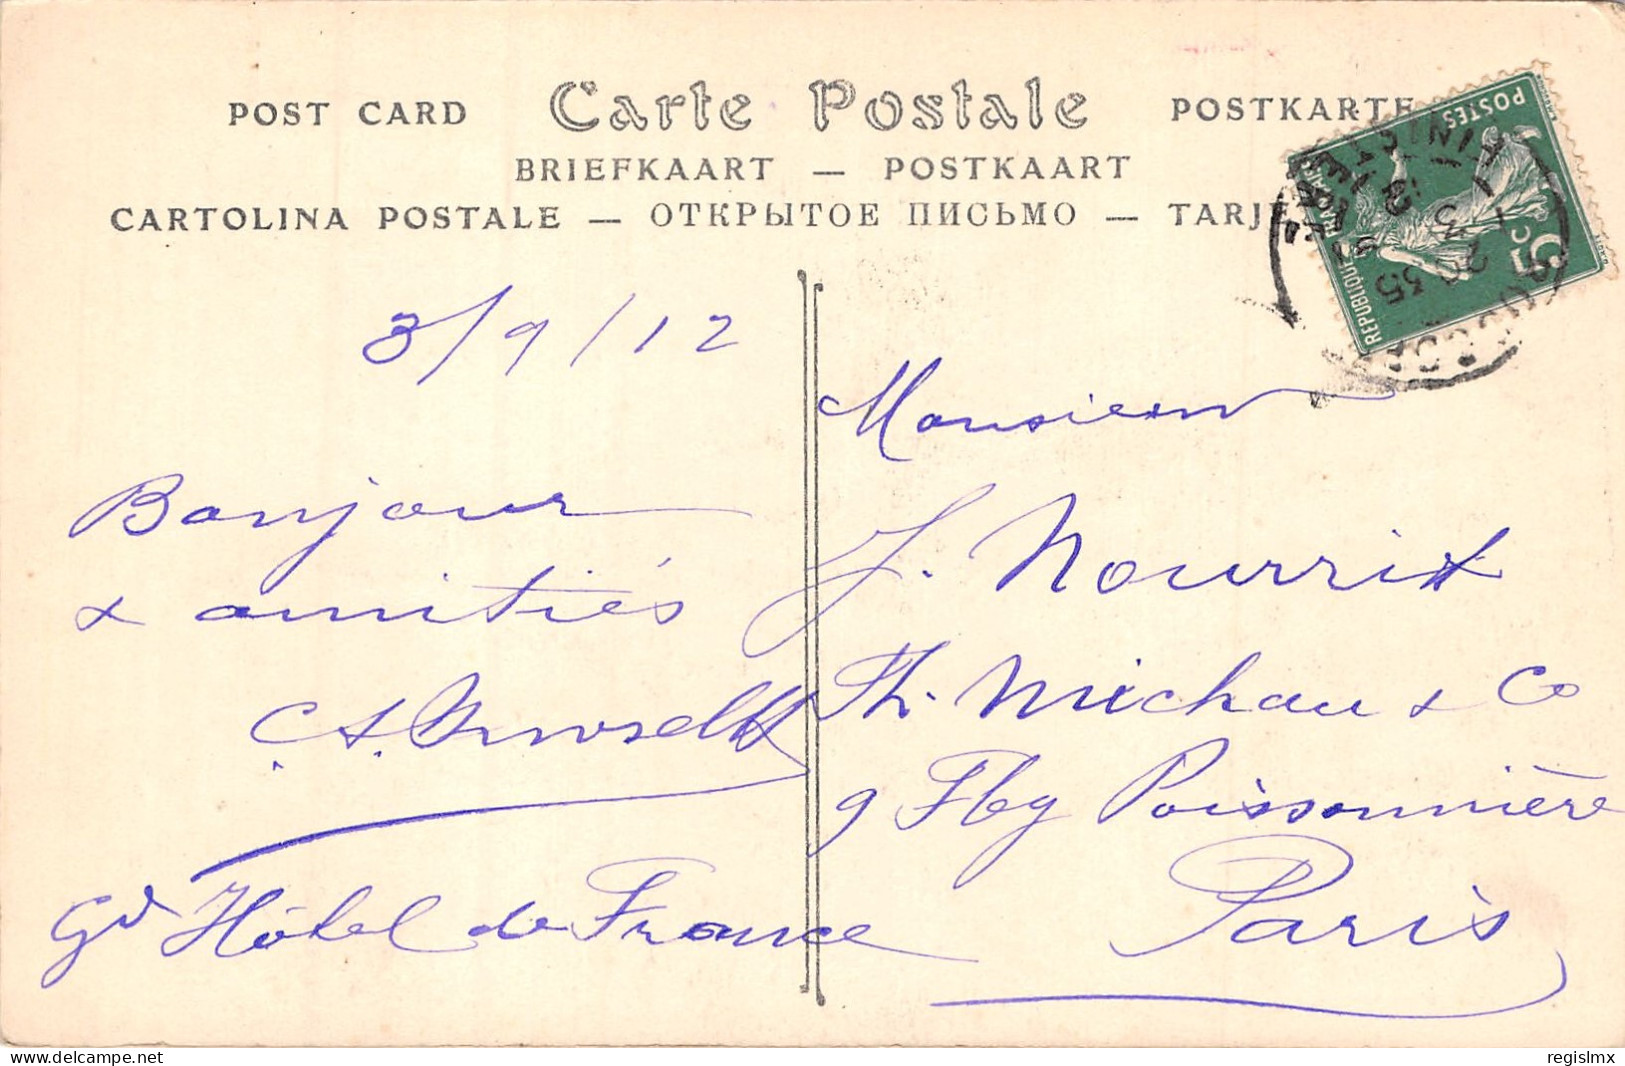 POST CARD Carte Postale POSTKARTE
BRIEFKAART — POSTKAART
CARTOLINA POSTALE — ОТКРЫТОЕ ПИСЬМО — TARJE
POSTES
5c
REPUBLIQUE FRANÇAISE
FINISTERE
20 35
3/9/12
Bonjour
& amitiés
C. A.
Gd Hôtel de France
Monsieur
J. Nourrit
Th. Michau & Co
9 Fbg Poissonnière
Paris
delcampe.net
regislmx